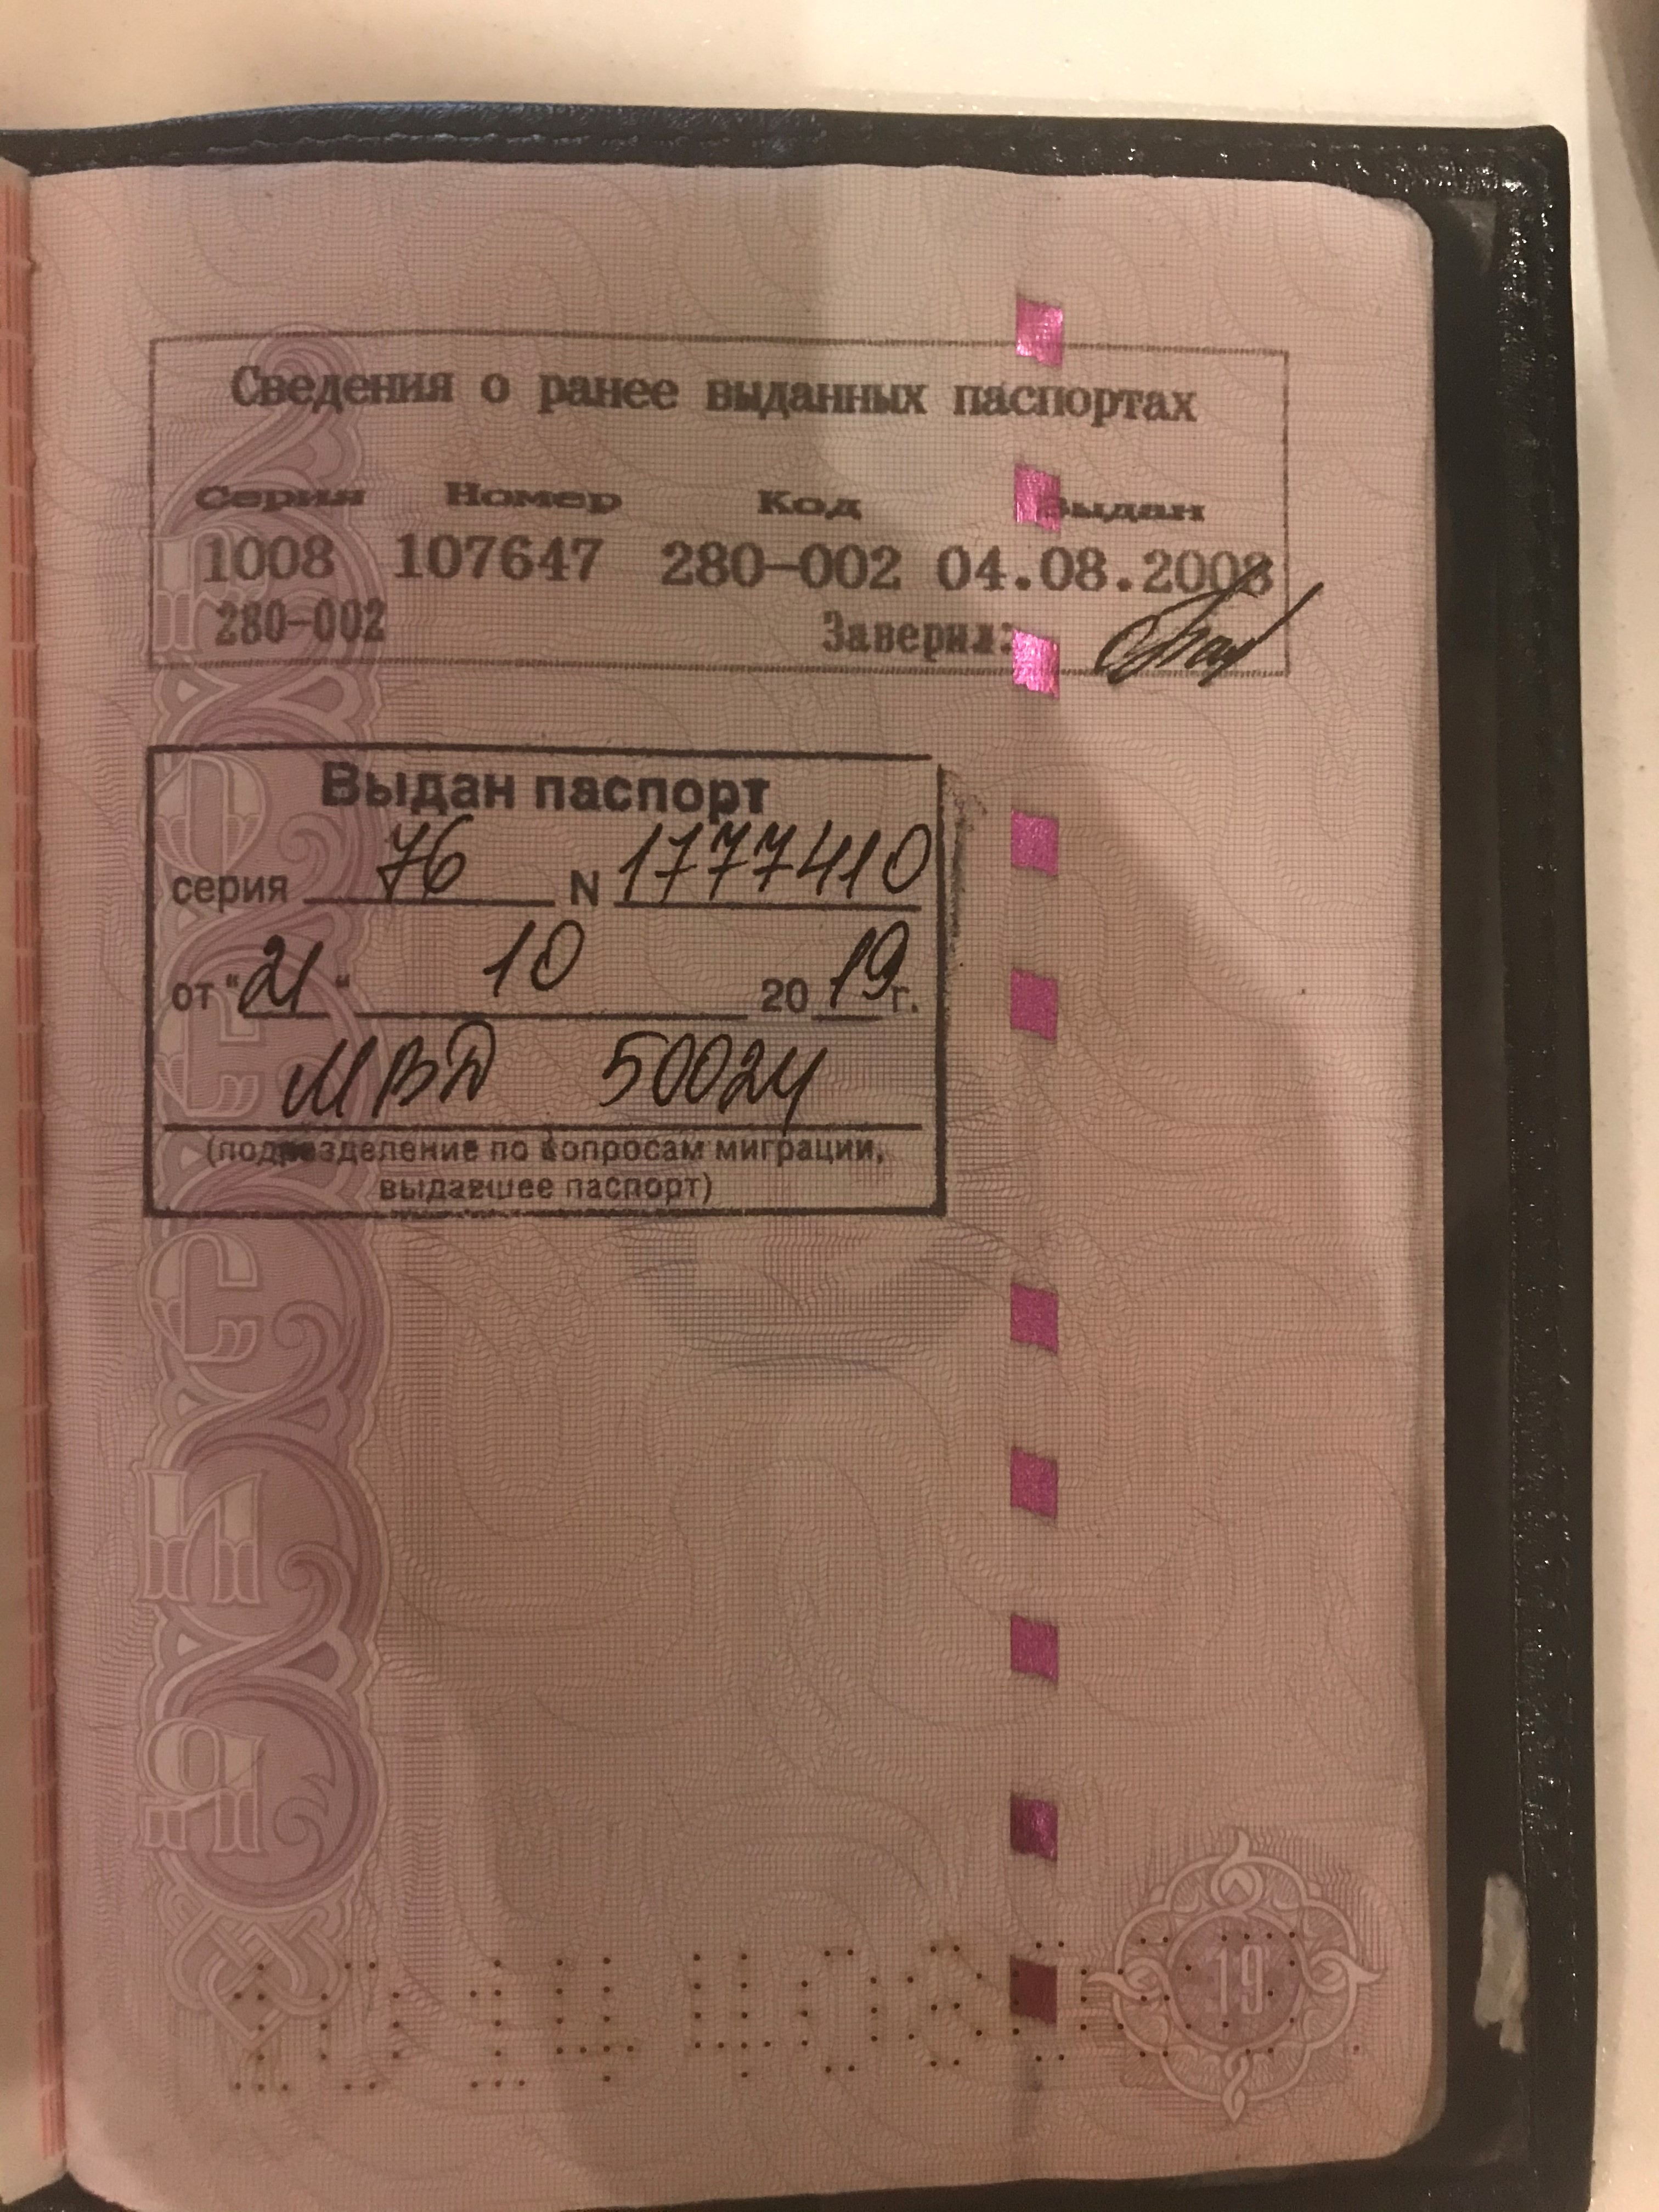 Сведения о ранее выданных паспортах
Серия Номер Код Выдан
1008 107647 280-002 04.08.2008
280-002 Заверил:
Выдан паспорт
серия 76 N 1777410
от "21" 10 2019г.
МВД 50024
(подразделение по вопросам миграции,
выдавшее паспорт)
РОССИЯ
19